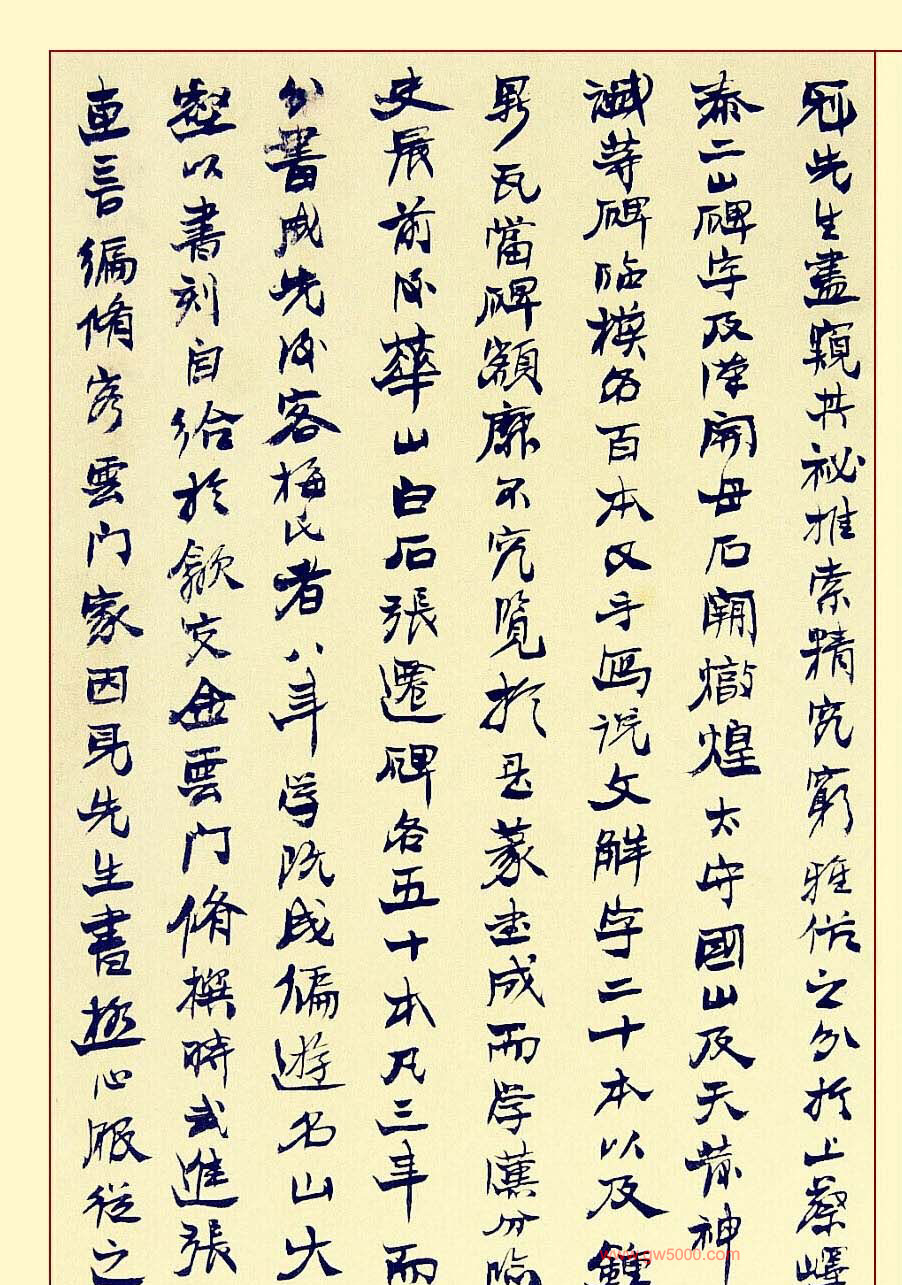 先生盡窺其祕推索精究窮雅俗之分於上蔡嶧
泰二山碑字及漢開母石闕燉煌太守國山及天發神
讖等碑臨模各百本又手寫說文解字二十本以及鐘
鼎瓦當碑額靡不究覽於是篆書成而學漢分臨
史晨前後華山白石張遷碑各五十本凡三年而
分書成先後客梅氏者八年学既成徧遊名山大
壑以書刻自給於歙交金雲門修撰時武進張
惠言編修客雲门家因見先生書極心服從之
www.gw5000.com